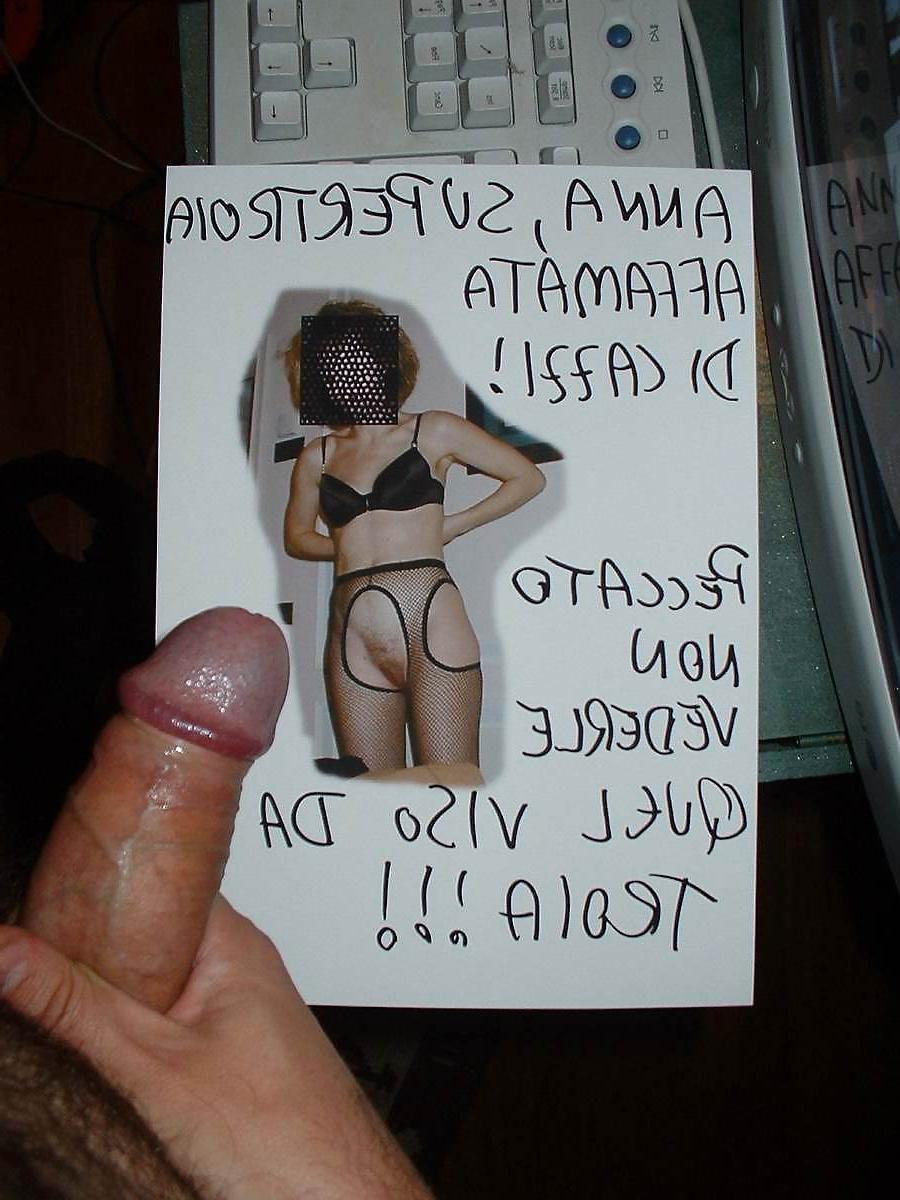 ANNA, SUPERTROIA
AFFAMATA
DI CAZZI!
PECCATO
NON
VEDERLE
QUEL VISO DA
TROIA!!!
ANN
AFFA
DI